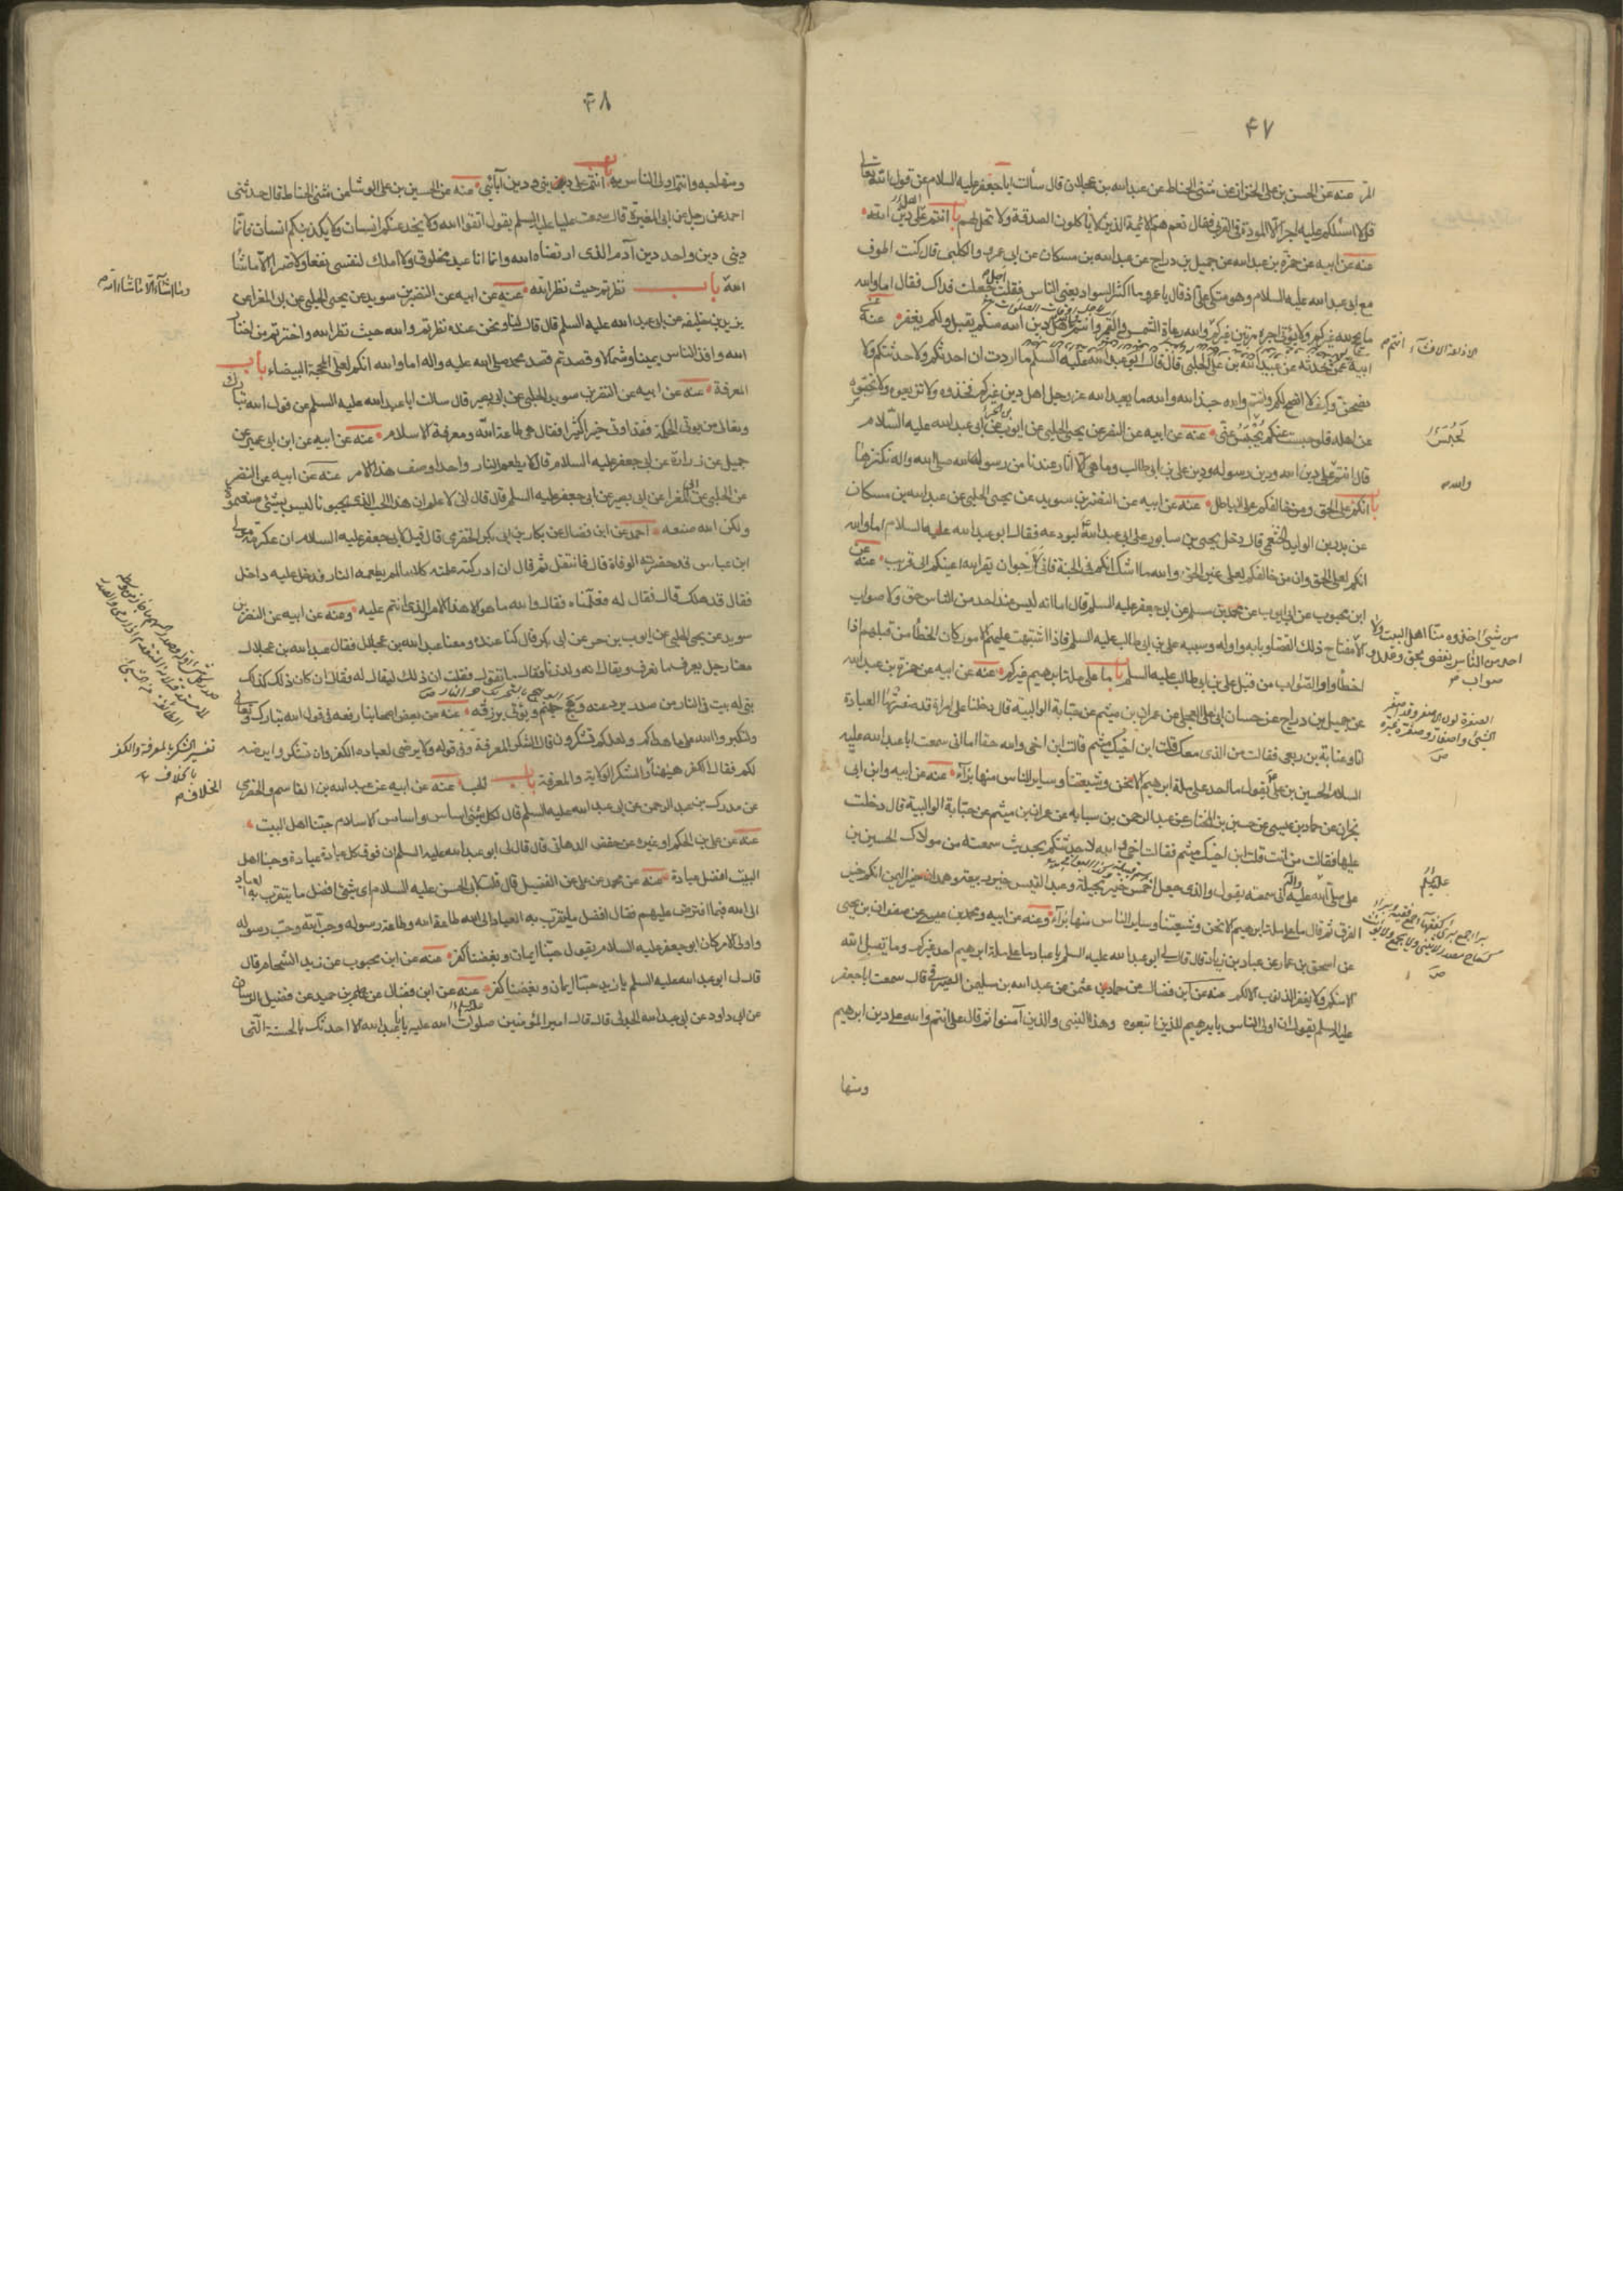 ۴۷
عنه عن الحسن بن على الخزاز عن مثنى الحناط عن عبدالله بن عجلان قال سألت ابا جعفر عليه السلام عن قول الله تعالى
قل لا اسئلكم عليه اجرا الا المودة فى القربى فقال نعم هم الائمة الذين لا يأكلون الصدقة ولا تحل لهم باب انتم على دين الله
عنه عن ابيه عن حمزة بن عبدالله عن جميل بن دراج عن عبدالله بن مسكان عن ابى عمرو الكلبى قال كنت اطوف
مع ابى عبدالله عليه السلام وهو متكئ على اذ قال يا عمرو ما اكثر السواد يعنى الناس فقلت اجل جعلت فداك فقال اما والله
ما يحج لله غيركم ولا يؤتى اجره مرتين غيركم والله رعاة الشمس والقمر وانتم والله اهل دين الله منكم يقبل ولكم يغفر عنه عن
ابيه عمن حدثه عن عبيدالله بن على الحلبى قال قال ابو عبدالله عليه السلم ما اردت ان احدثكم ولاحدثنكم ولا
نصحن وكيف لا انصح لكم وانتم والله جند الله والله ما يعبد الله عز وجل اهل دين غيركم فخذوه ولا تذيعوه ولا تحبسوه
عن اهله فلو حبست عنكم يحبس عنى عنه عن ابيه عن النضر عن يحيى الحلبى عن ايوب بن الحر عن ابى عبدالله عليه السلام
قال انتم على دين الله ودين رسوله ودين على بن ابى طالب وما هى الا اثار عندنا من رسول الله صلى الله واله نكنزها
باب انكم على الحق ومن خالفكم على الباطل عنه عن ابيه عن النضر بن سويد عن يحيى الحلبى عن عبدالله بن مسكان
عن بدر بن الوليد الخثعمى قال دخل يحيى بن سابور على ابى عبدالله ليودعه فقال ابو عبدالله عليه السلام اما والله
انكم لعلى الحق وان من خالفكم لعلى غير الحق والله ما اشك انكم فى الجنة فانى لارجو ان يقر الله اعينكم الى قريب عنه عن
ابن محبوب عن ابى ايوب عن محمد بن مسلم عن ابى جعفر عليه السلم قال اما انه ليس عند احد من الناس حق ولا صواب
الا مفتاح ذلك القضاء وبابه واوله وسببه على بن ابى طالب عليه السلم فاذا اشتبهت عليهم الامور كان الخطأ من قبلهم اذا
اخطأوا والصواب من قبل على بن ابى طالب عليه السلم باب ما على ملة ابرهيم غيركم عنه عن ابيه عن حمزة بن عبدالله
عن جميل بن دراج عن حسان ابى على العجلى عن عمران بن ميثم عن حبابة الوالبية قال دخلنا على امراة قد صفرتها العبادة
انا وعباية بن ربعى فقالت من الذى معك قلت ابن اخيك ميثم قالت ابن اخى والله حقا اما انى سمعت ابا عبدالله عليه
السلام الحسين بن على يقول ما احد على ملة ابرهيم الا نحن وشيعتنا وساير الناس منها برآء عنه عن ابيه وابن ابى
نجران عن حماد بن عيسى عن حسين بن المختار عن عبد الرحمن بن سيابه عن عمران بن ميثم عن حبابة الوالبية قال دخلت
عليها فقالت من انت قلت ابن اخيك ميثم فقالت اخى والله لاحدثنكم بحديث سمعته من مولاك الحسين بن
على صلى الله عليه واله انى سمعته يقول والذى جعل احمس خير بجيلة وعبد القيس خير ربيعة وهمدان خير اليمن انكم خير
الفرق ثم قال ما على ملة ابرهيم الا نحن وشيعتنا وساير الناس منها برآء وعنه عن ابيه ومحمد بن عيسى عن صفوان بن يحيى
عن اسحق بن عمار عن عباد بن زياد قال قال لى ابو عبدالله عليه السلم يا عباد ما على ملة ابرهيم احد غيركم وما يقبل الله
الا منكم ولا يغفر الذنوب الا لكم عنه عن ابن فضال عن حماد بن عثمن عن عبدالله بن سليمن الصيرفى قال سمعت ابا جعفر
عليه السلم يقول ان اولى الناس بابرهيم للذين اتبعوه وهذا النبى والذين آمنوا ثم قال على انتم والله على دين ابرهيم
ومنها
الاذاعة الافشاء
انتم
تحبس
والله
من شئ اخذوه منا اهل البيت ولا
احد من الناس يقضى بحق وعدل و
صواب
الصفرة لون الاصفر وقد اصفر
الشئ واصفار وصفره غيره
ص
۴۸
ومنهاجه وانتم اولى الناس به باب انتم على دينى ودين آبائى عنه عن الحسين بن على الوشا عن مثنى الحناط قال حدثنى
احمد عن رجل عن ابى المغيرة قال سمعت عليا عليه السلم يقول اتقوا الله ولا يخدعنكم انسان ولا يكذبنكم انسان فانما
دينى دين واحد دين آدم الذى ارتضاه الله وانما انا عبد مخلوق ولا املك لنفسى نفعا ولا ضرا الا ما شاء
الله باب نظرتم حيث نظر الله عنه عن ابيه عن النضر بن سويد عن يحيى الحلبى عن ابى المغرا عن
يزيد بن خليفه عن ابى عبدالله عليه السلم قال قال لنا ونحن عنده نظرتم والله حيث نظر الله واخترتم من اختار
الله واخذ الناس يمينا وشمالا وقصدتم قصد محمد صلى الله عليه واله اما والله انكم لعلى المحجة البيضاء باب
المعرفة عنه عن ابيه عن النضر بن سويد الحلبى عن ابى بصير قال سالت ابا عبدالله عليه السلم عن قول الله تبارك
وتعالى من يوتى الحكمة فقد اوتى خيرا كثيرا فقال هى طاعة الله ومعرفة الاسلام عنه عن ابيه عن ابن ابى عمير عن
جميل عن زرارة عن ابى جعفر عليه السلام قال لا يطعم النار واحدا وصف هذا الامر عنه عن ابيه عن النضر
عن الحلبى عن ابى المغرا عن ابى بصير عن ابى جعفر عليه السلم قال قال انى لاعلم ان هذا الحب الذى يحبونا ليس بشئ صنعموه
ولكن الله صنعه احمد عن ابن فضال عن بكار بن ابى بكر الحضرمى قال قيل لابى جعفر عليه السلام ان عكرمة مولى
ابن عباس قد حضرته الوفاة قال فانتقل ثم قال ان ادركته علمته كلاما لم يطعمه النار فدخل عليه داخل
فقال قد هلك قال فقال له فعلمناه فقال والله ما هو الا هذا الامر الذى انتم عليه وعنه عن ابيه عن النضر بن
سويد عن يحيى الحلبى عن ايوب بن حر عن ابى بكر قال كنا عنده ومعنا عبدالله بن عجلان فقال عبدالله بن عجلان
معنا رجل يعرف ما نعرف ويقال انه ولد زنا فقال ما تقول فقلت ان ذلك ليقال له فقال ان كان ذلك كذلك
بنى له بيت فى النار من صدر يرد عنه وهج جهنم ويؤتى برزقه عنه عن بعض اصحابنا رفعه فى قول الله تبارك وتعالى
ولتكبروا الله على ما هداكم ولعلكم تشكرون قال الشكر المعرفة وفى قوله ولا يرضى لعباده الكفر وان تشكروا يرضه
لكم فقال الكفر هيهنا الخلاف والشكر الولاية والمعرفة باب الحب عنه عن ابيه عن عبدالله بن القاسم الحضرمى
عن مدرك بن عبد الرحمن عن ابى عبدالله عليه السلم قال لكل شئ اساس واساس الاسلام حبنا اهل البيت
عنه عن على بن الحكم او غيره عن حفص الدهان قال قال لى ابو عبدالله عليه السلم ان فوق كل عبادة عبادة وحبنا اهل
البيت افضل عبادة عنه عن محمد بن على عن الفضيل قال قلت لابى الحسن عليه السلام اى شئ افضل ما يتقرب به العباد
الى الله فيما افترض عليهم فقال افضل ما يتقرب به العباد الى الله طاعة الله وطاعة رسوله وحب الله وحب رسوله
واولى الامر كان ابو جعفر عليه السلام يقول حبنا ايمان وبغضنا كفر عنه عن ابن محبوب عن زيد الشحام قال
قال لى ابو عبدالله عليه السلم يا زيد حبنا ايمان وبغضنا كفر عنه عن ابن فضال عن عاصم بن حميد عن فضيل الرسان
عن ابى داود عن ابى عبدالله الجدلى قال قال امير المؤمنين صلوات الله عليه يا با عبدالله الا احدثك بالحسنة التى
وما اشاء الا ما شاء الله
تفسير الشكر بالمعرفة والكفر
بالخلاف
الخلاف